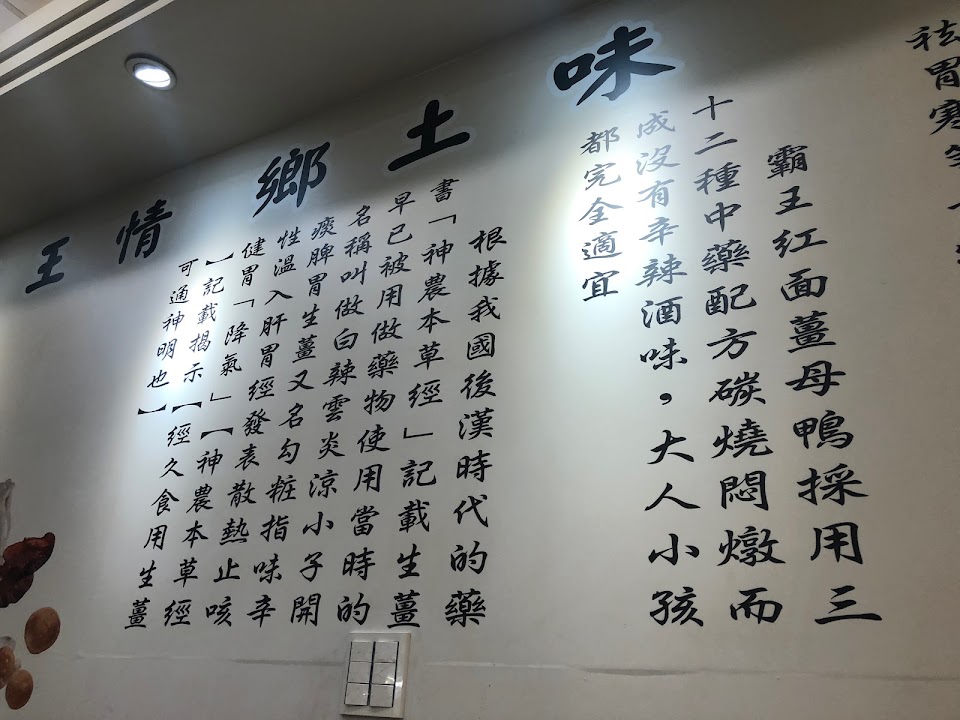 王情 鄉土味
祛胃寒
霸王红面薑母鴨採用三
十二種中藥配方碳燒悶燉而
成沒有辛辣酒味,大人小孩
都完全適宜
根據我國後漢時代的藥
書「神農本草經」記載生薑
早已被用做藥物使用當時的
名稱叫做白辣雲炎涼小子開
痰脾胃生薑又名勾粧指味辛
性溫入肝胃經發表散熱止咳
健胃「降氣」【神農本草經
】記載揭示【經久食用生薑
可通神明也】